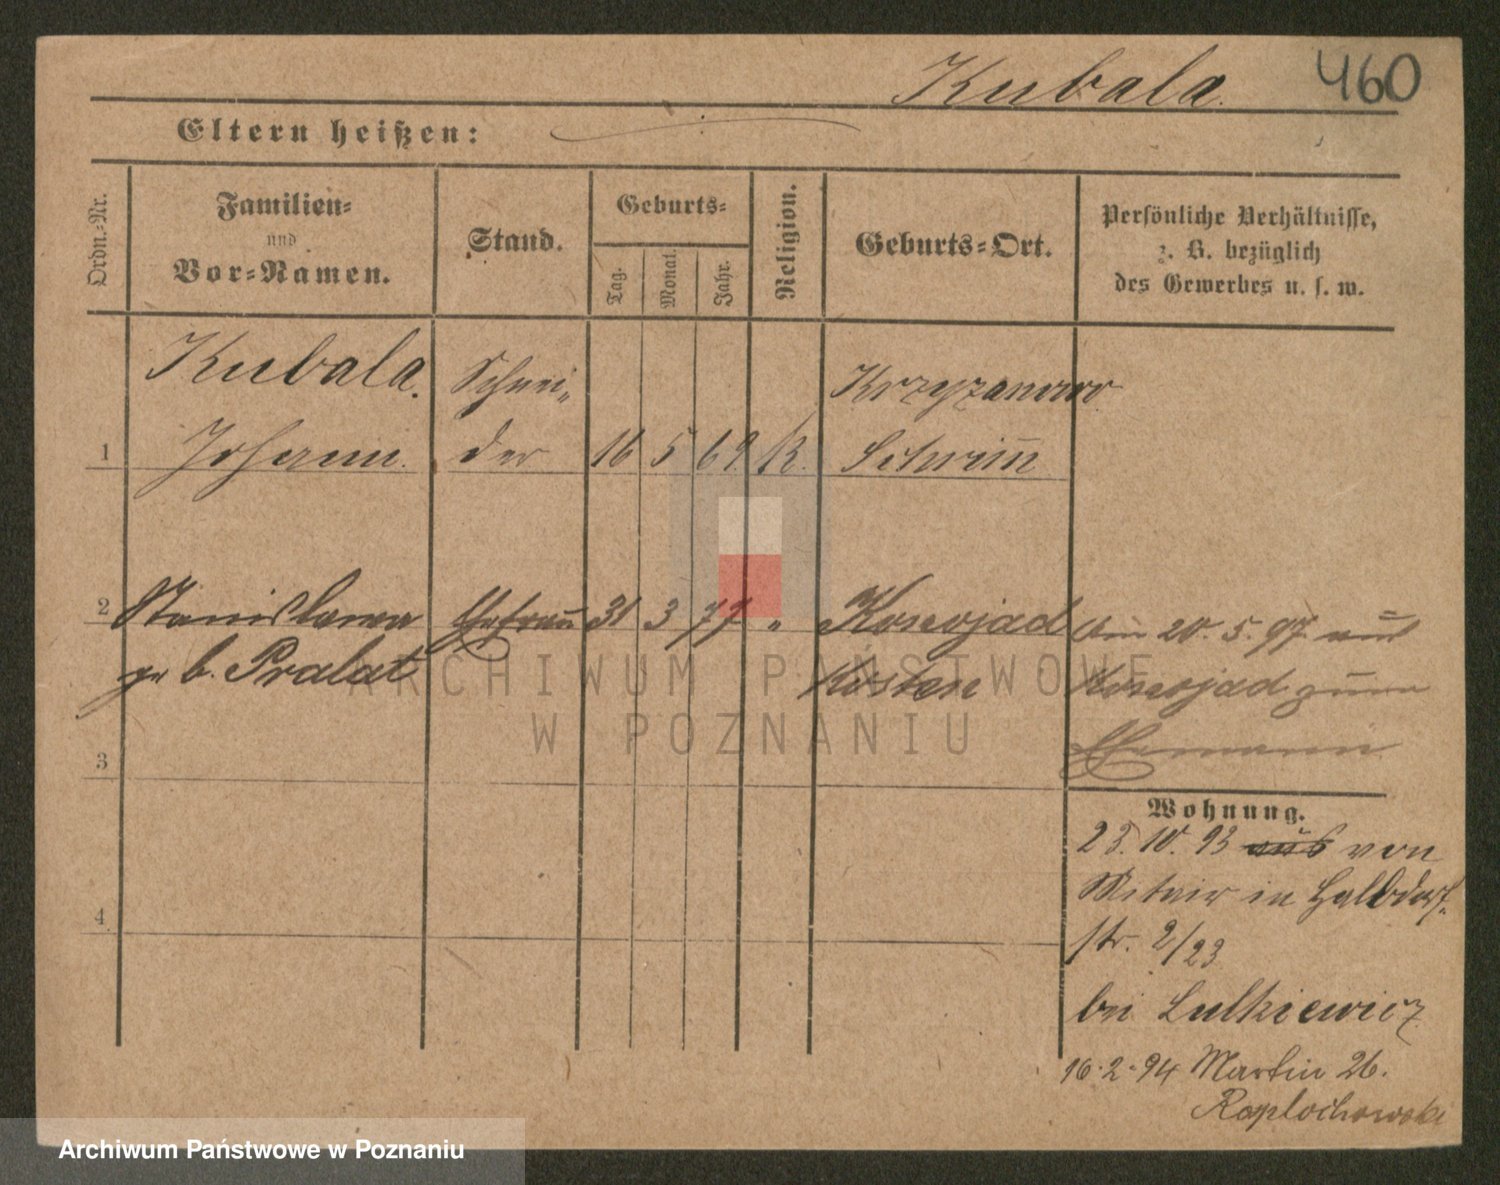 Kubala. 460
Eltern heißen:
Ordn.-Nr.
Familien-
und
Vor-Namen.
Stand.
Geburts-
Tag.
Monat.
Jahr.
Religion.
Geburts-Ort.
Persönliche Verhältnisse,
z. B. bezüglich
des Gewerbes u. s. w.
Kubala. Schnei- Krzyzanowo
1 Johann. der 16 5 69 k. Schrimm
2 Stanislawa Ehefrau 31 3 77 " Konojad Am 20. 5. 97 aus
geb. Pralat Kosten Konojad zum
Ehemann
3
Wohnung.
23. 10. 93 aus von
in Halbdorf-
4
str. 2/23
bei Lutkiewicz
16. 2. 94 Martin 26.
Roplochowski
ARCHIWUM PAŃSTWOWE
W POZNANIU
Archiwum Państwowe w Poznaniu